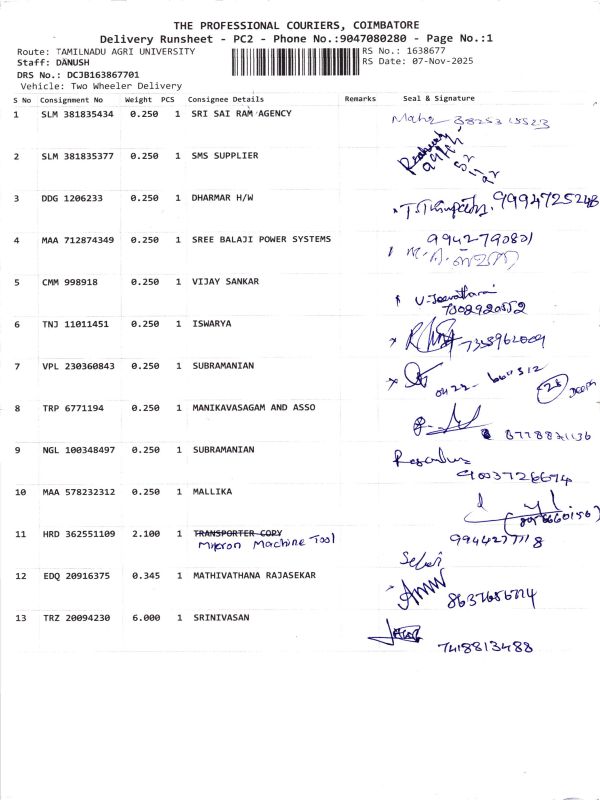 THE PROFESSIONAL COURIERS, COIMBATORE
Delivery Runsheet - PC2 - Phone No.:9047080280 - Page No.:1
Route: TAMILNADU AGRI UNIVERSITY RS No.: 1638677
Staff: DANUSH RS Date: 07-Nov-2025
DRS No.: DCJB163867701
Vehicle: Two Wheeler Delivery
S No Consignment No Weight PCS Consignee Details Remarks Seal & Signature
1 SLM 381835434 0.250 1 SRI SAI RAM AGENCY
2 SLM 381835377 0.250 1 SMS SUPPLIER
3 DDG 1206233 0.250 1 DHARMAR H/W 9994725248
4 MAA 712874349 0.250 1 SREE BALAJI POWER SYSTEMS 9942790801
5 CMM 998918 0.250 1 VIJAY SANKAR
6 TNJ 11011451 0.250 1 ISWARYA
7 VPL 230360843 0.250 1 SUBRAMANIAN
8 TRP 6771194 0.250 1 MANIKAVASAGAM AND ASSO
9 NGL 100348497 0.250 1 SUBRAMANIAN
10 MAA 578232312 0.250 1 MALLIKA
11 HRD 362551109 2.100 1 TRANSPORTER COPY
Micron Machine Tool
12 EDQ 20916375 0.345 1 MATHIVATHANA RAJASEKAR
13 TRZ 20094230 6.000 1 SRINIVASAN
7418813488